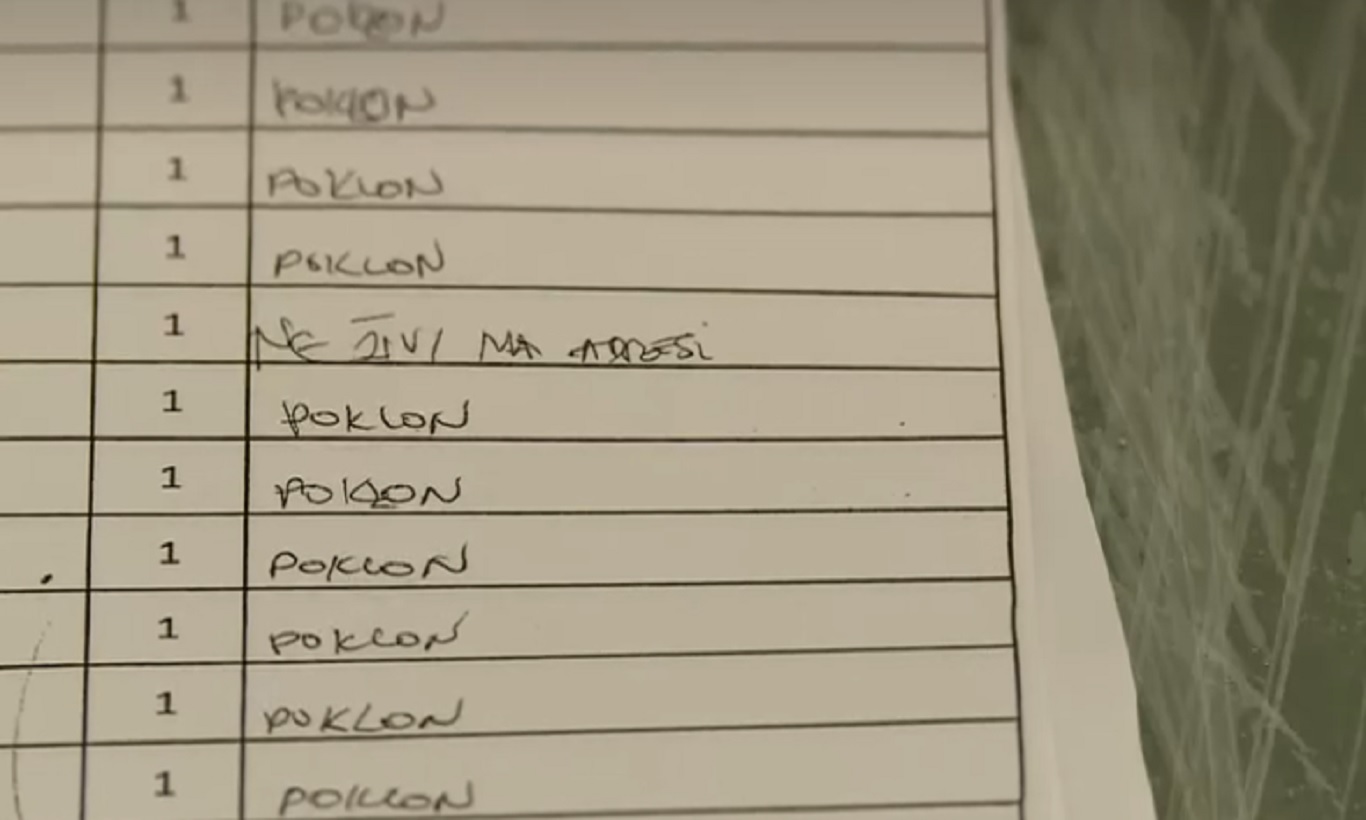 1 POKLON
1 POKLON
1 POKLON
1 POKLON
1 NE ŽIVI NA ADRESI
1 POKLON
1 POKLON
1 POKLON
1 POKLON
1 POKLON
1 POKLON